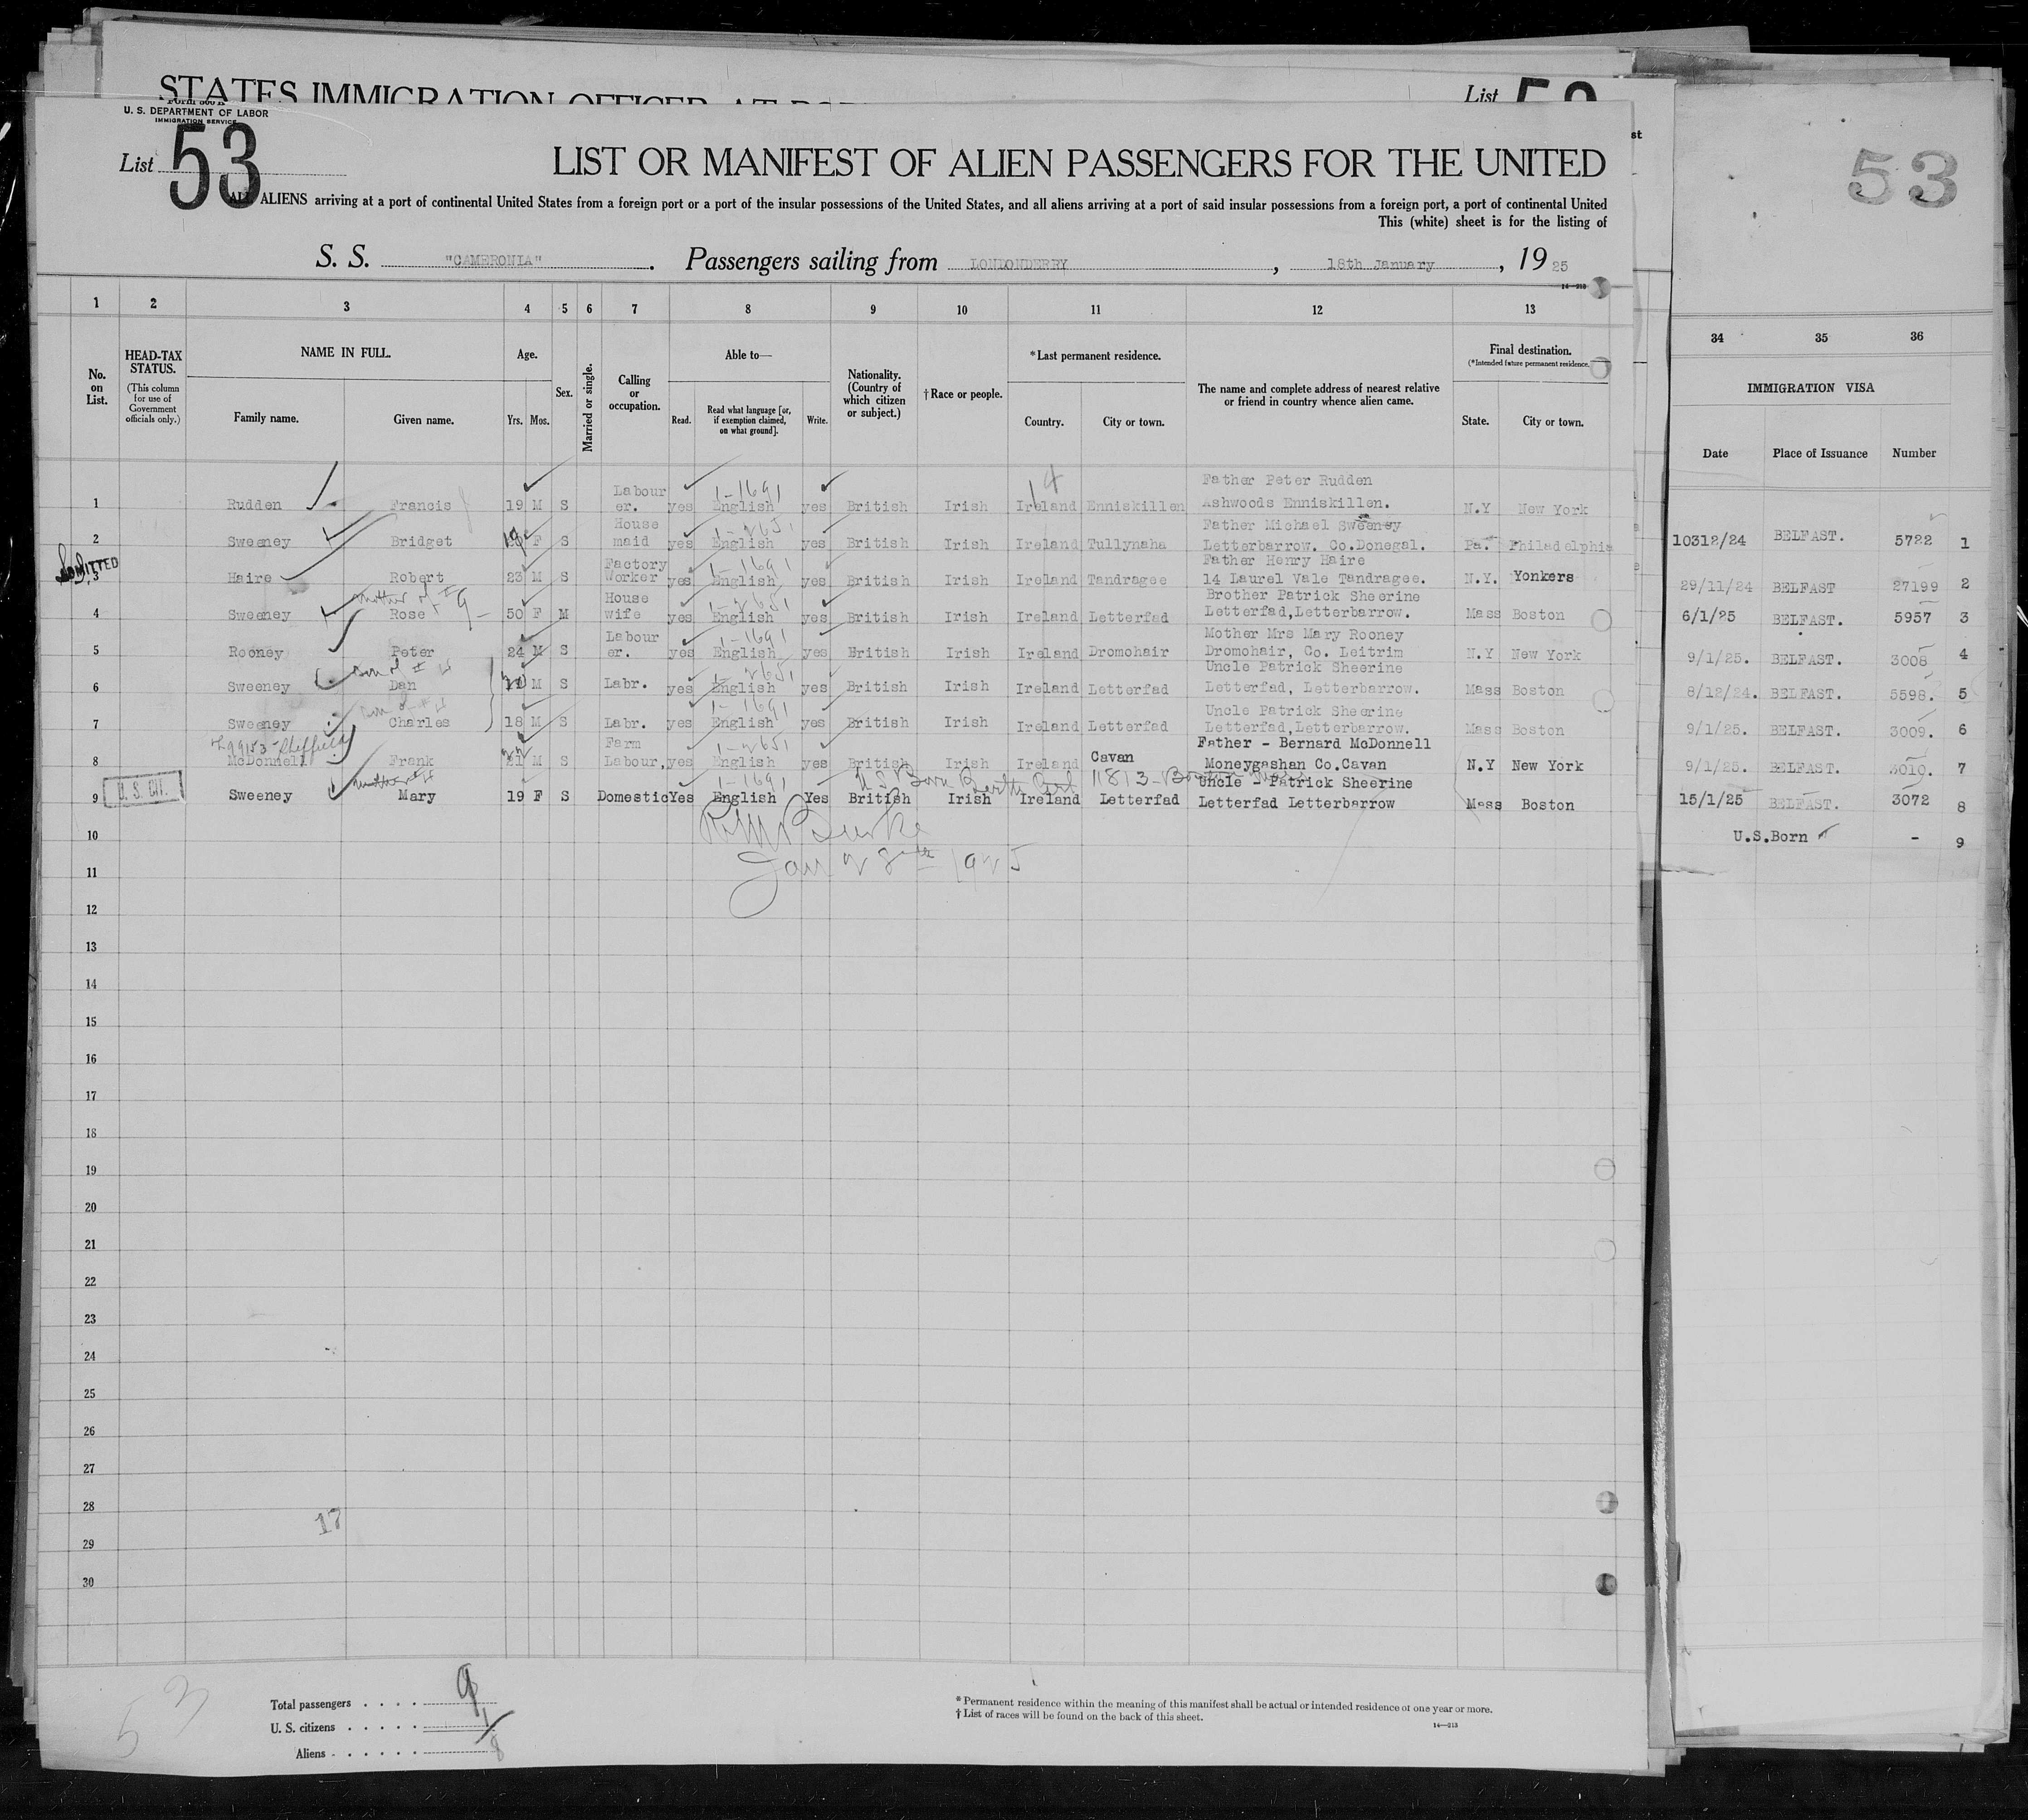 STATES IMMIGRATION OFFICER AT
List
U. S. DEPARTMENT OF LABOR
IMMIGRATION SERVICE
List 53
LIST OR MANIFEST OF ALIEN PASSENGERS FOR THE UNITED
ALL ALIENS arriving at a port of continental United States from a foreign port or a port of the insular possessions of the United States, and all aliens arriving at a port of said insular possessions from a foreign port, a port of continental United
This (white) sheet is for the listing of
S. S. "CAMERONIA". Passengers sailing from LONDONDERRY, 18th January, 1925
14—213
53
1 2 3 4 5 6 7 8 9 10 11 12 13
34 35 36
No. on List.
HEAD-TAX STATUS.
(This column for use of Government officials only.)
NAME IN FULL.
Family name. Given name.
Age.
Yrs. Mos.
Sex.
Married or single.
Calling or occupation.
Able to—
Read. Read what language [or, if exemption claimed, on what ground]. Write.
Nationality. (Country of which citizen or subject.)
† Race or people.
*Last permanent residence.
Country. City or town.
The name and complete address of nearest relative or friend in country whence alien came.
Final destination.
(*Intended future permanent residence.)
State. City or town.
IMMIGRATION VISA
Date Place of Issuance Number
1 Rudden Francis 19 M S Labour er. yes 1-1691 English yes British Irish Ireland Enniskillen Father Peter Rudden Ashwoods Enniskillen. N.Y New York
2 Sweeney Bridget 19 F S House maid yes 1-2651 English yes British Irish Ireland Tullynaha Father Michael Sweeney Letterbarrow. Co.Donegal. Pa. Philadelphia
ADMITTED
3 Haire Robert 23 M S Factory Worker yes 1-1691 English yes British Irish Ireland Tandragee Father Henry Haire 14 Laurel Vale Tandragee. N.Y. Yonkers
mother of # 9
4 Sweeney Rose 50 F M House wife yes 1-2651 English yes British Irish Ireland Letterfad Brother Patrick Sheerine Letterfad,Letterbarrow. Mass Boston
5 Rooney Peter 24 M S Labour er. yes 1-1691 English yes British Irish Ireland Dromohair Mother Mrs Mary Rooney Dromohair, Co. Leitrim N.Y New York
son of # 4
6 Sweeney Dan M S Labr. yes 1-2651 English yes British Irish Ireland Letterfad Uncle Patrick Sheerine Letterfad, Letterbarrow. Mass Boston
son of # 4
7 Sweeney Charles 18 M S Labr. yes 1-1691 English yes British Irish Ireland Letterfad Uncle Patrick Sheerine Letterfad,Letterbarrow. Mass Boston
8 McDonnell Frank 21 M S Farm Labour, yes 1-2651 English yes British Irish Ireland Cavan Father - Bernard McDonnell Moneygashan Co.Cavan N.Y New York
U. S. CIT.
U.S. Born Birth Cert 11813-Boston Mass
9 Sweeney Mary 19 F S Domestic Yes 1-1691 English Yes British Irish Ireland Letterfad Uncle - Patrick Sheerine Letterfad Letterbarrow Mass Boston
Burke
Jan 28th 1925
10
11
12
13
14
15
16
17
18
19
20
21
22
23
24
25
26
27
28
29
30
17
10312/24 BELFAST. 5722 1
29/11/24 BELFAST 27199 2
6/1/25 BELFAST. 5957 3
9/1/25. BELFAST. 3008 4
8/12/24. BELFAST. 5598. 5
9/1/25. BELFAST. 3009. 6
9/1/25. BELFAST. 3010. 7
15/1/25 BELFAST. 3072 8
U.S.Born - 9
53
Total passengers . . . . 9
U. S. citizens . . . . . 1
Aliens . . . . . . 8
* Permanent residence within the meaning of this manifest shall be actual or intended residence of one year or more.
† List of races will be found on the back of this sheet.
14—213